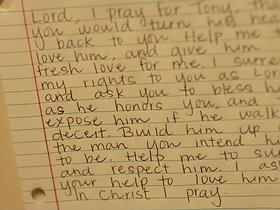 Lord, I pray for Tony, that
you would turn his heart
back to you. Help me to
love him, and give him
fresh love for me. I surre
my rights to you as Lo
and ask you to bless h
as he honors you, and
expose him if he walk
deceit. Build him up
the man you intend h
to be. Help me to su
and respect him. I as
your help to love him
In Christ pray.